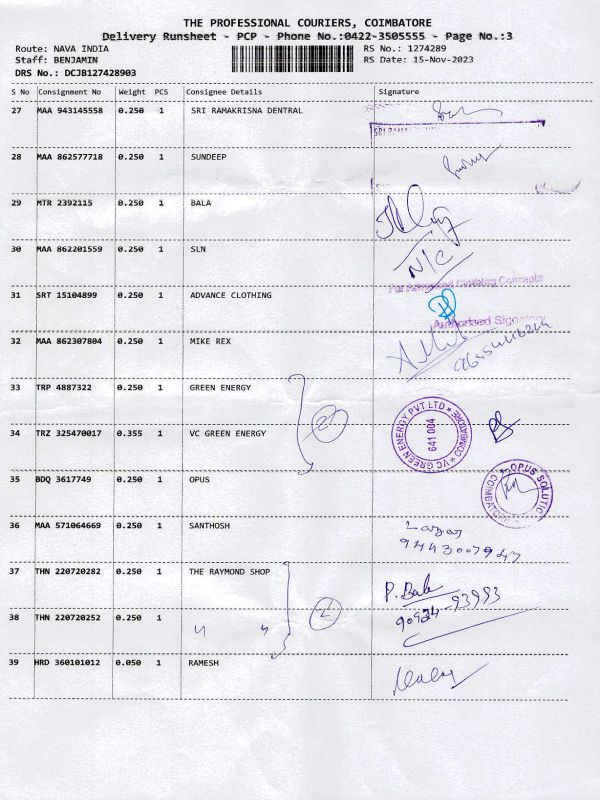 THE PROFESSIONAL COURIERS, COIMBATORE
Delivery Runsheet - PCP - Phone No.:0422-3505555 - Page No.:3
Route: NAVA INDIA RS No.: 1274289
Staff: BENJAMIN RS Date: 15-Nov-2023
DRS No.: DCJB127428903
S No Consignment No Weight PCS Consignee Details Signature
27 MAA 943145558 0.250 1 SRI RAMAKRISNA DENTRAL
28 MAA 862577718 0.250 1 SUNDEEP
29 MTR 2392115 0.250 1 BALA
30 MAA 862201559 0.250 1 SLN N/C
For Advanced Clothing Concepts
31 SRT 15104899 0.250 1 ADVANCE CLOTHING
Authorised Signatory
32 MAA 862307804 0.250 1 MIKE REX
33 TRP 4887322 0.250 1 GREEN ENERGY
2
34 TRZ 325470017 0.355 1 VC GREEN ENERGY VC GREEN ENERGY PVT LTD * COIMBATORE * 641 004
35 BDQ 3617749 0.250 1 OPUS * OPUS SOLUTIO COIMBATO
36 MAA 571064669 0.250 1 SANTHOSH
9443007947
37 THN 220720282 0.250 1 THE RAYMOND SHOP P. Bala
38 THN 220720252 0.250 1 " " 2 90924-93993
39 HRD 360101012 0.050 1 RAMESH